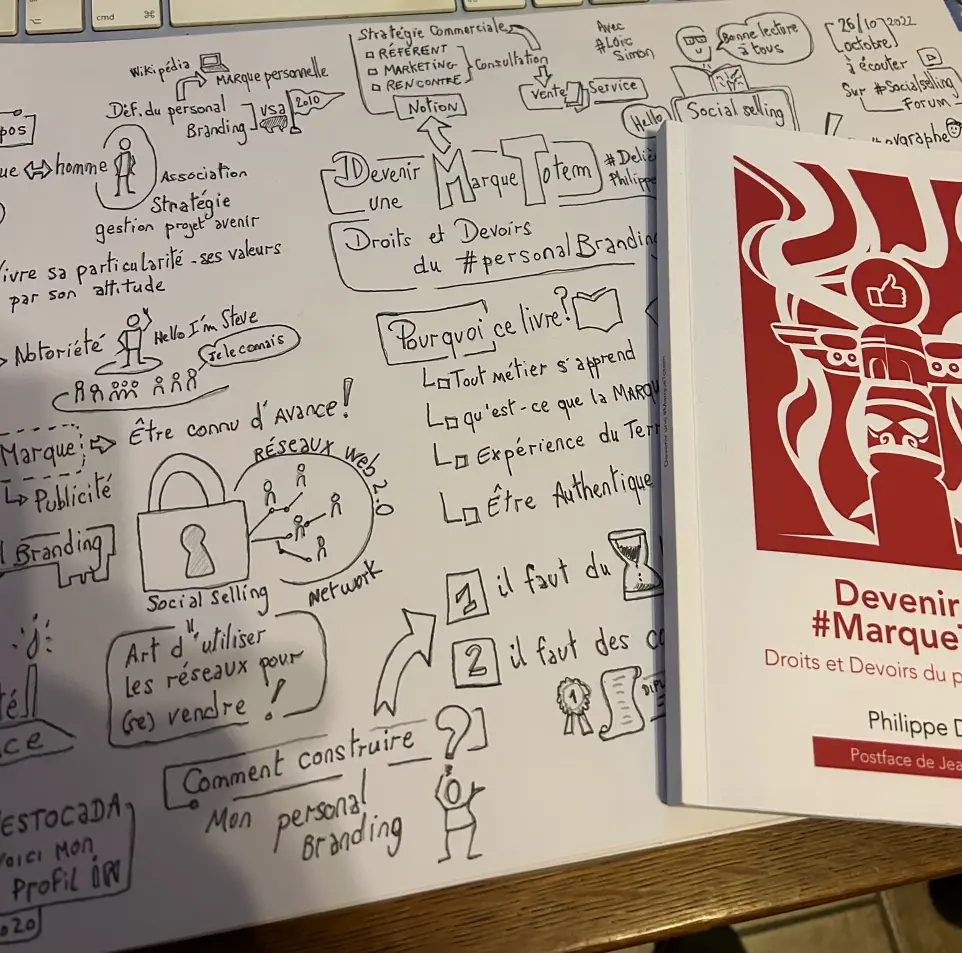 cmd
⌘
Wikipédia
Marque personnelle
Déf. du personal
Branding
USA
2010
Stratégie Commerciale
RÉFÉRENT
MARKETING
RENCONTRE
Consultation
Notion
Vente
Service
Avec
#Loïc
Simon
Bonne lecture
à tous
Hello
Social selling
26/10/2022
octobre
à écouter
Sur #Socialselling
Forum
homme
Association
Stratégie
gestion projet avenir
vivre sa particularité - ses valeurs
par son attitude
Devenir
une
Marque Totem
Philippe
Droits et Devoirs
du #personal Branding
Notoriété
Hello I'm Steve
Je le connais
Marque
Être connu d'Avance!
Publicité
Branding
RÉSEAUX Web 2.0
Network
Social Selling
Pourquoi ce livre?
Tout métier s'apprend
qu'est-ce que la
Expérience du
Être Authentique
1 il faut du
2 il faut des
1
Art d'utiliser
les réseaux pour
(se) vendre !
Comment construire ?
Mon personal
Branding
ESTOCADA
Voici mon
Profil in
Devenir
Droits et Devoirs du
Philippe
Postface de